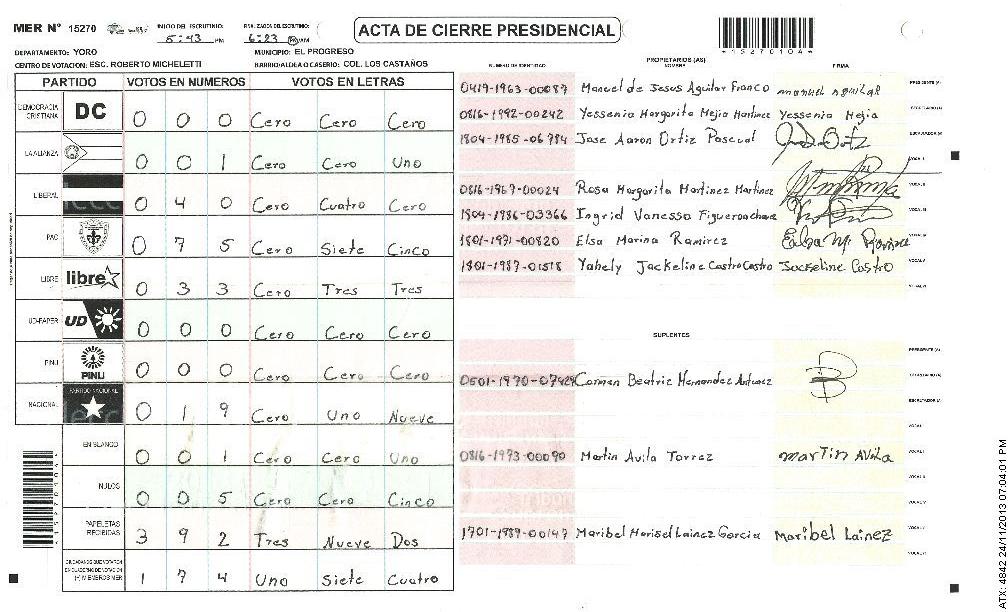 MER Nº 15270
INICIO DEL ESCRUTINIO: 5:43 PM
FINALIZACION DEL ESCRUTINIO: 6:23 PM
ACTA DE CIERRE PRESIDENCIAL
*15270104*
DEPARTAMENTO: YORO
MUNICIPIO: EL PROGRESO
CENTRO DE VOTACION: ESC. ROBERTO MICHELETTI
BARRIO/ALDEA O CASERIO: COL. LOS CASTAÑOS
PARTIDO VOTOS EN NUMEROS VOTOS EN LETRAS
DEMOCRACIA CRISTIANA DC 0 0 0 Cero Cero Cero
LA ALIANZA 0 0 1 Cero Cero Uno
LIBERAL 0 4 0 Cero Cuatro Cero
PAC 0 7 5 Cero Siete Cinco
LIBRE libre 0 3 3 Cero Tres Tres
UD-FAPER UD 0 0 0 Cero Cero Cero
PINU PINU 0 0 0 Cero Cero Cero
NACIONAL PARTIDO NACIONAL 0 1 9 Cero Uno Nueve
EN BLANCO 0 0 1 Cero Cero Uno
NULOS 0 0 5 Cero Cero Cinco
PAPELETAS RECIBIDAS 3 9 2 Tres Nueve Dos
CIUDADANOS QUE VOTARON EN CUADERNO DE VOTACION (+) MIEMBROS MER 1 7 4 Uno Siete Cuatro
PROPIETARIOS (AS)
NUMERO DE IDENTIDAD NOMBRE FIRMA
0419-1963-00087 Manuel de Jesus Aguilar Franco manuel aguilar PRESIDENTE (A)
0816-1992-00242 Yessenia Margarita Mejia Martinez Yessenia Mejia SECRETARIO (A)
1804-1985-06784 Jose Aaron Ortiz Pascual ESCRUTADOR (A)
VOCAL I
0816-1967-00024 Rosa Margarita Martinez Martinez VOCAL II
1804-1986-03366 Ingrid Vanessa Figueroa VOCAL III
1801-1971-00820 Elsa Marina Ramirez Elsa M. Ramirez VOCAL IV
1801-1987-01518 Yahely Jackeline Castro Castro Jackeline Castro VOCAL V
VOCAL VI
SUPLENTES
PRESIDENTE (A)
0501-1970-07429 Carmen Beatriz Hernandez SECRETARIO (A)
ESCRUTADOR (A)
VOCAL I
0816-1973-00090 Martin Avila Torrez martin Avila VOCAL II
VOCAL III
VOCAL IV
1701-1989-00147 Maribel Marisel Lainez Garcia Maribel Lainez VOCAL V
VOCAL VI
ATX: 4842 24/11/2013 07:04:01 PM